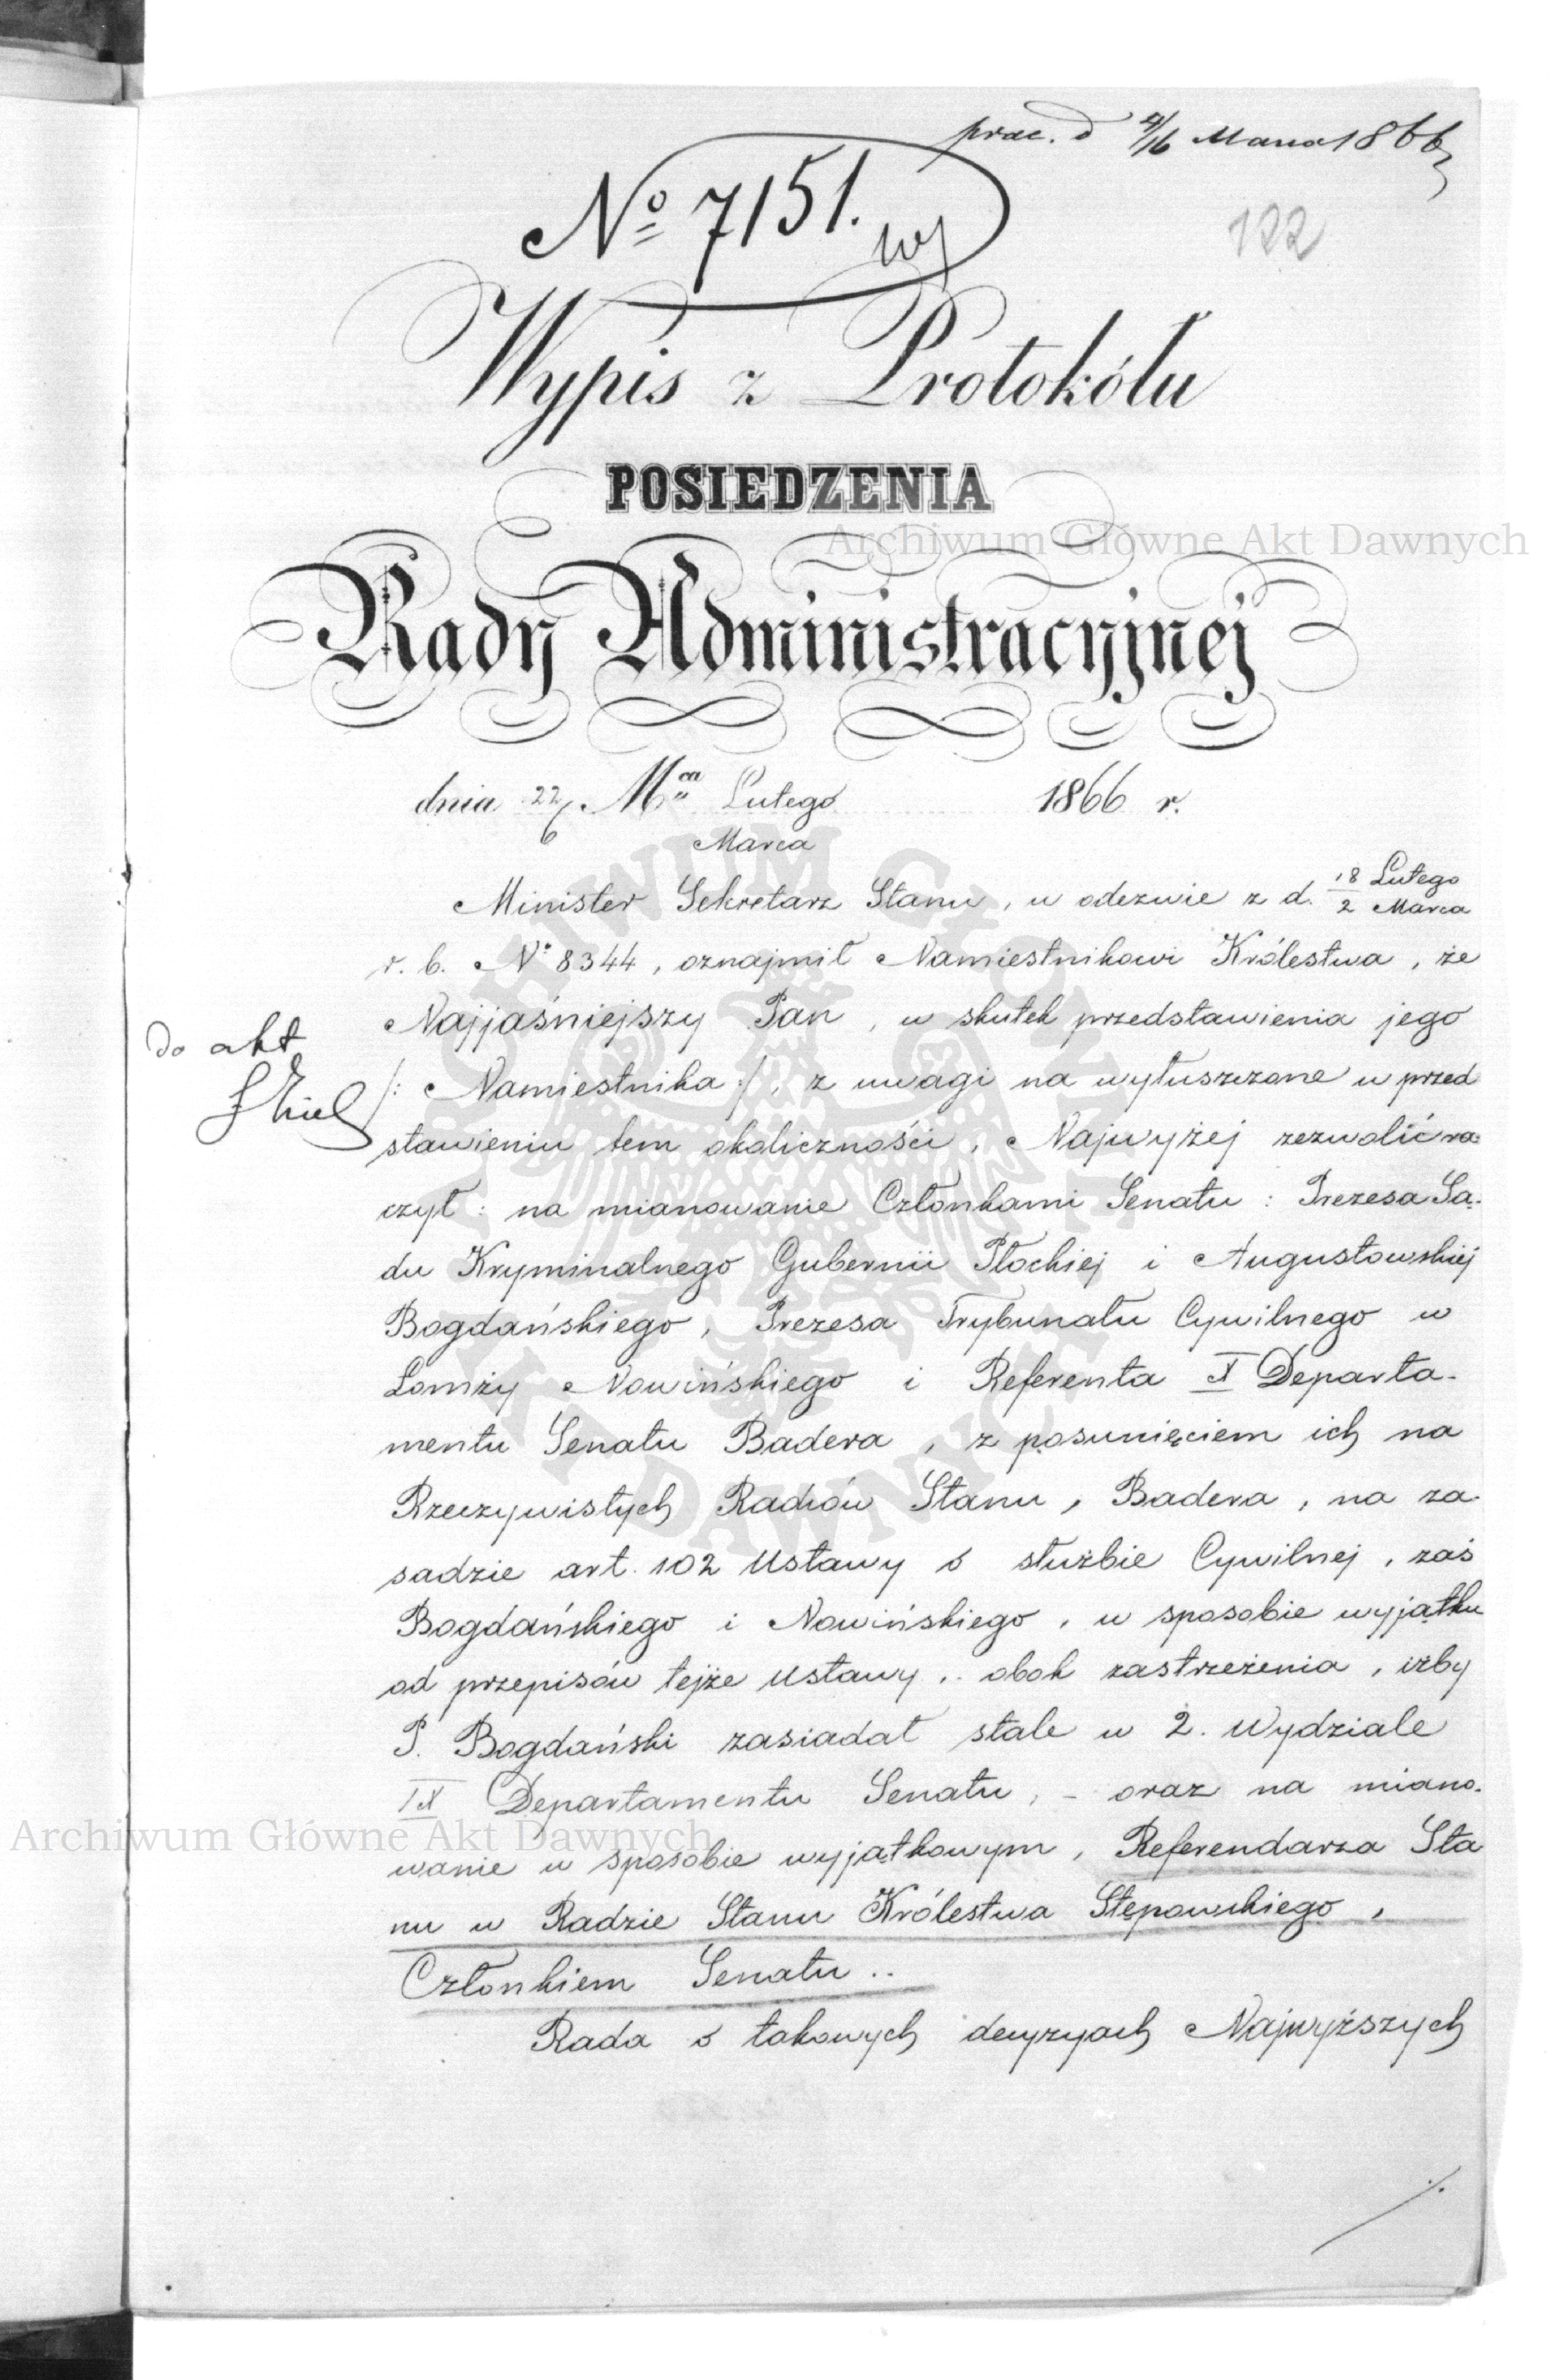 prae. d 4/16 Marca 1866
122
№ 7151.
Wypis z Protokółu
POSIEDZENIA
Archiwum Główne Akt Dawnych
Rady Administracyjnej
dnia 22/6 Mca Lutego 1866 r.
Marca
Minister Sekretarz Stanu, w odezwie z d. 18 Lutego
2 Marca
r. b. N° 8344, oznajmił Namiestnikowi Królestwa, że
Najjaśniejszy Pan, w skutek przedstawienia jego
Do akt
/: Namiestnika :/, z uwagi na wyłuszczone w przed
stawieniu tem okoliczności, Najwyżej zezwolić ra-
czył: na mianowanie Członkami Senatu: Prezesa Są-
du Kryminalnego Gubernii Płockiej i Augustowskiej
Bogdańskiego, Prezesa Trybunału Cywilnego w
Łomży Nowińskiego i Referenta X Departa-
mentu Senatu Badera, z posunięciem ich na
Rzeczywistych Radców Stanu, Badera, na za-
sadzie art. 102 Ustawy o służbie Cywilnej, zaś
Bogdańskiego i Nowińskiego, w sposobie wyjątku
od przepisów tejże Ustawy, obok zastrzeżenia, iżby
P. Bogdański zasiadał stale w 2. Wydziale
IX Departamentu Senatu, - oraz na miano-
Archiwum Główne Akt Dawnych
wanie w sposobie wyjątkowym, Referendarza Sta
nu w Radzie Stanu Królestwa Stępowskiego,
Członkiem Senatu..
Rada o takowych decyzyach Najwyższych
./.
ARCHIWUM GŁÓWNE AKT DAWNYCH